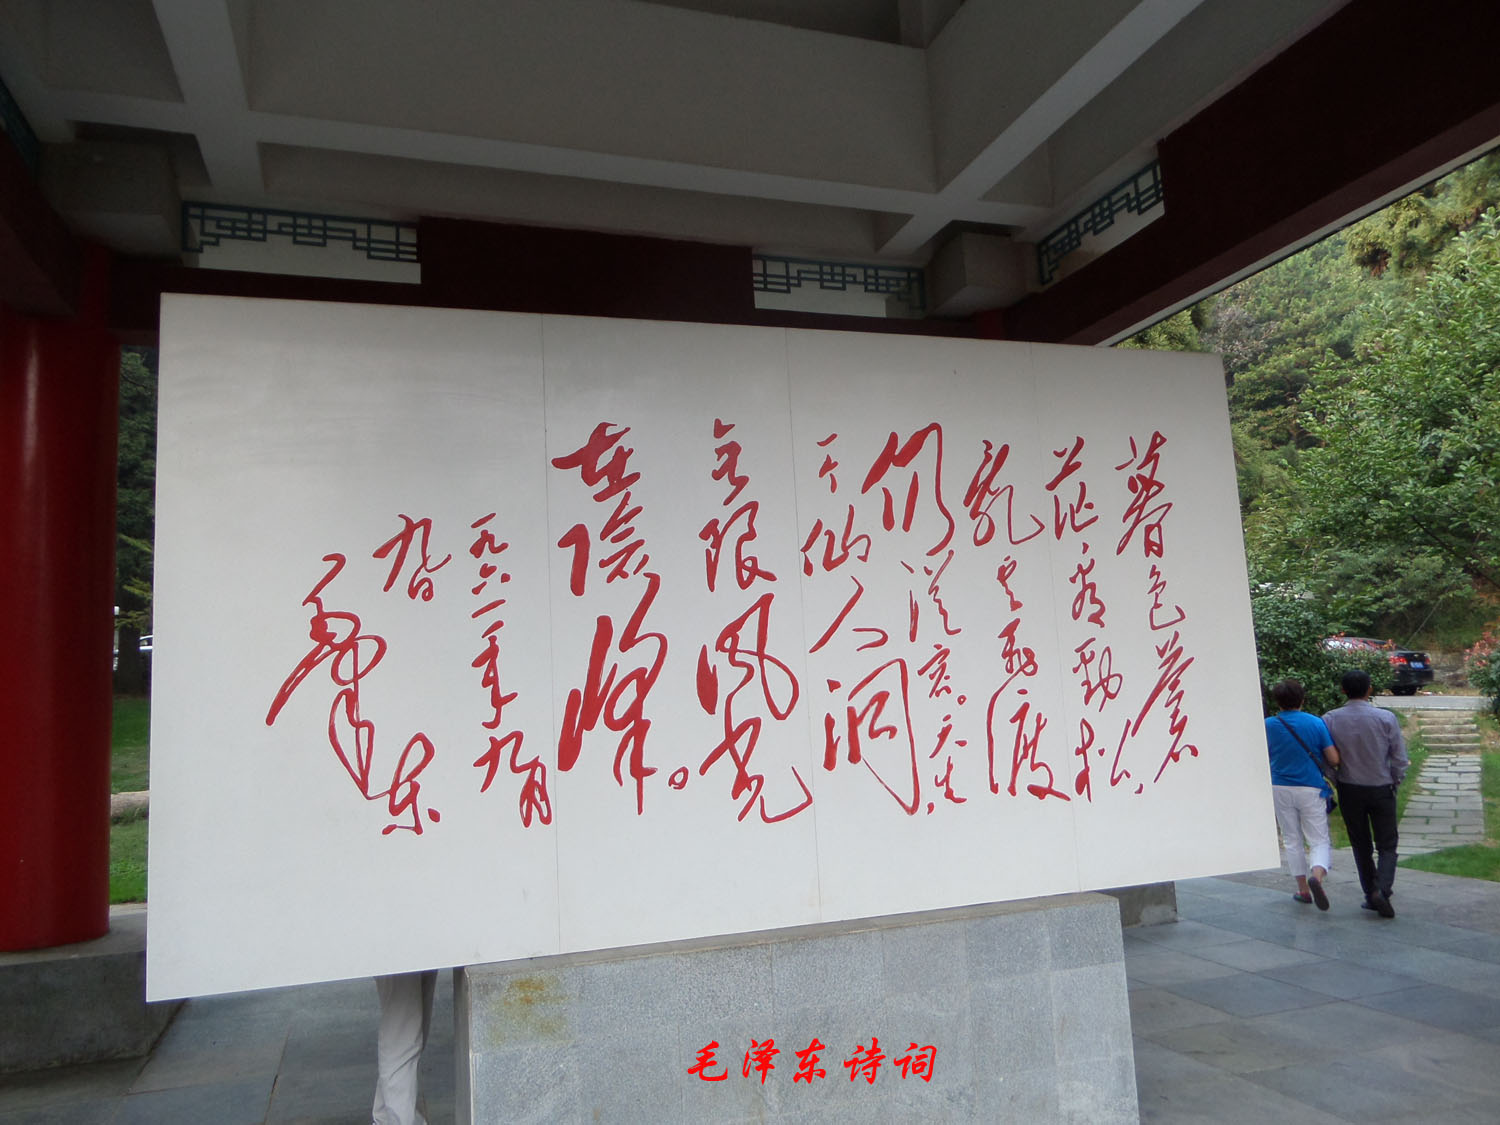 暮色蒼
茫看勁松，
乱云飞渡
仍從容。天生
一个仙人洞，
无限風光
在險峰。
一九六一年九月
九日
毛泽东
毛泽东诗词